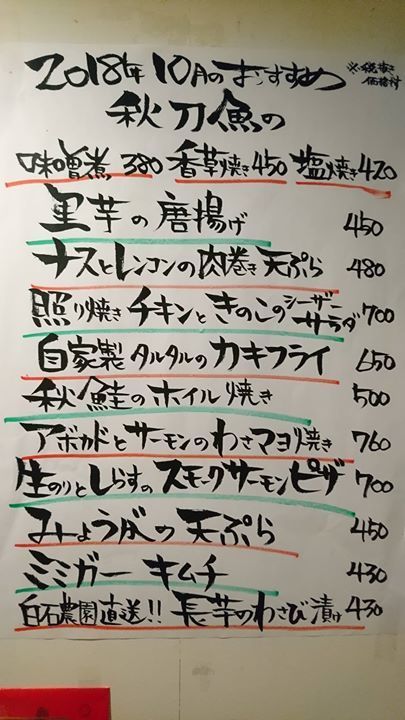 2018年10月のおすすめ ※税抜き価格です
秋刀魚の
味噌煮 380 香草焼き450 塩焼き420
里芋の唐揚げ 450
ナスとレンコンの肉巻き天ぷら 480
照り焼きチキンときのこのシーザーサラダ 700
自家製タルタルのカキフライ 650
秋鮭のホイル焼き 500
アボカドとサーモンのわさマヨ焼き 760
生のりとしらすのスモークサーモンピザ 700
みょうがの天ぷら 450
ミミガーキムチ 430
白石農園直送!! 長芋のわさび漬け 430